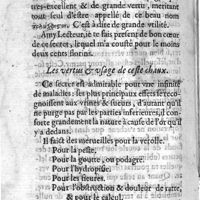 tres-excellent & de grande vertu, meritant
tout seul d'estre appellé de ce beau nom
C'est à dire de grande vesleé.
Amy Lecteur, ie te fais present de bon cœur de
ce secret, lequel m'a cousté pour le moins
deux cents florins.
Les vertus & vsage de ceste chaux.
Ce secret est admirable pour vne infinité
de maladies: ses plus principaux effects se reco-
gnoissent aux vrines & sueurs, d'autant qu'il
ne purge pas par les parties inferieures, il con-
forte grandement la nature à cause de l'or qu'il
y a dedans.
Il faict des merueilles pour la verolle.
Pour la peste,
Pour la goutte, ou podagre
Pour l'hydropisie.
Pour les fieures.
Pour l'obstruction & douleur de ratte,
& pour le calcul.